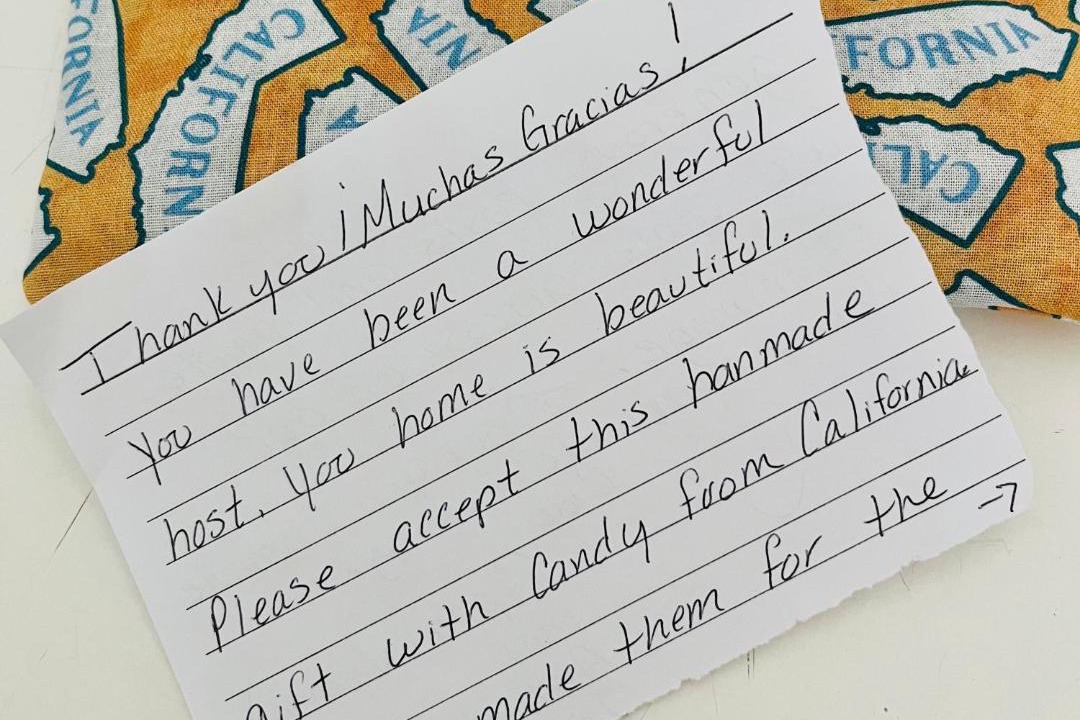 FORNIA
CALIFORN
NIA
A
FORNIA
CAL
Thank you ¡Muchas Gracias!
You have been a wonderful
host. You home is beautiful.
Please accept this hanmade
gift with Candy from California.
made them for the →